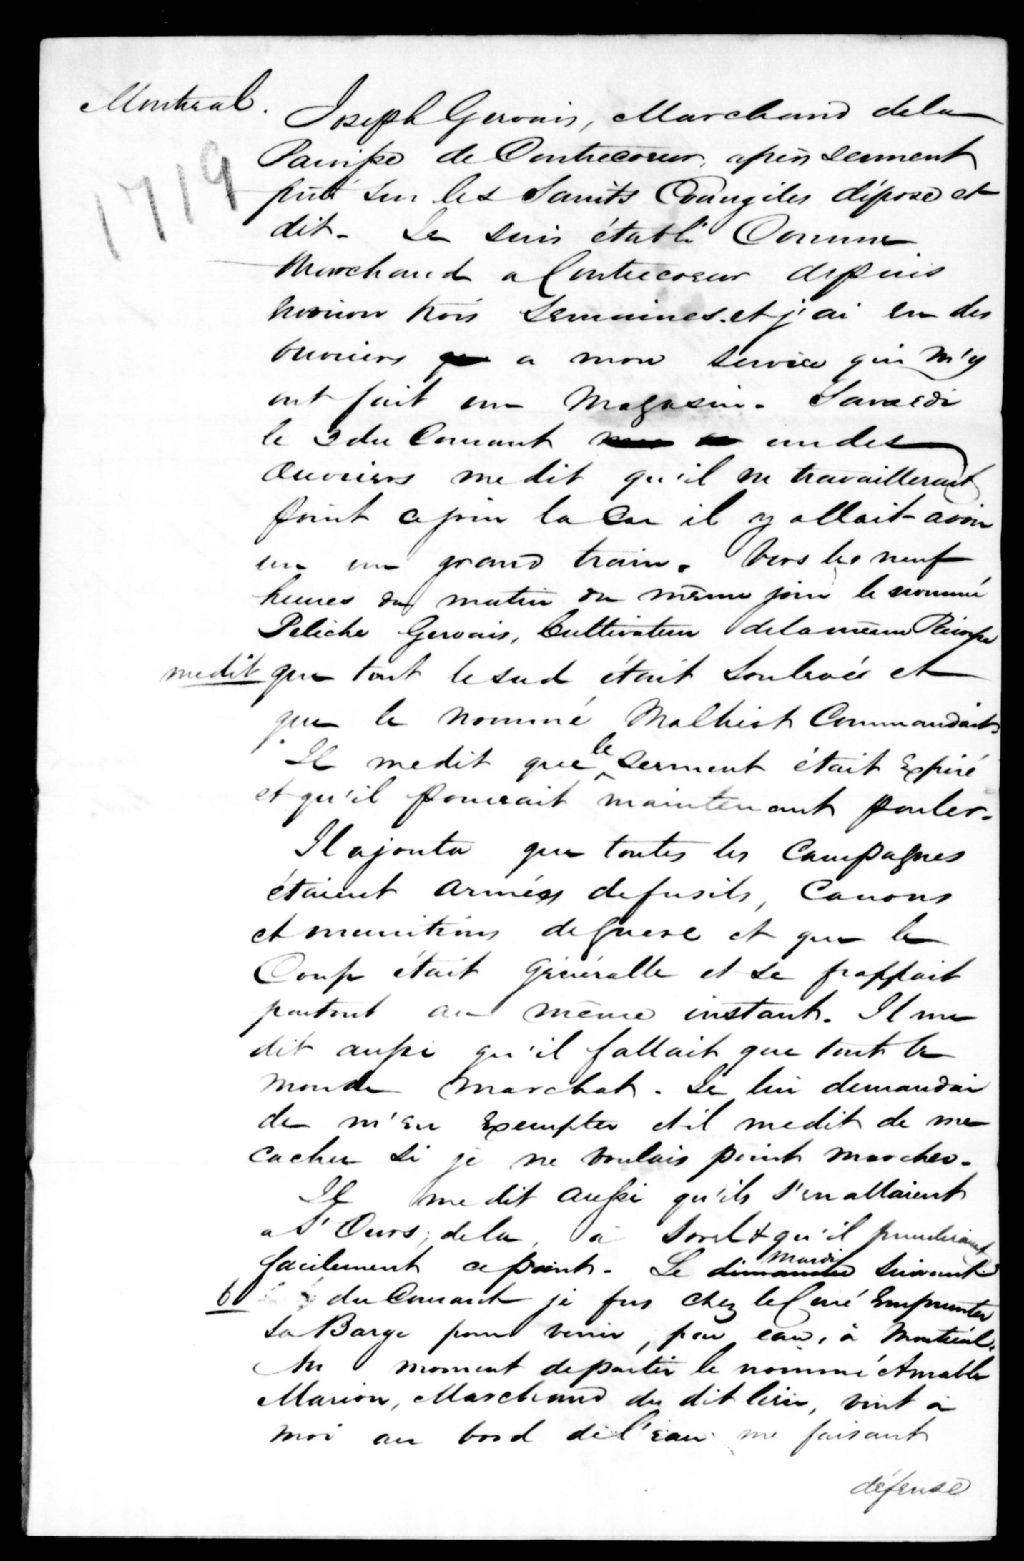 Montreal. Joseph Gervais, Marchand de la
1719
Paroisse de Contrecoeur, après serment
prêté sur les Saints Evangiles dépose et
dit. Je suis établi Comme
Marchand a Contrecoeur depuis
environ trois Semaines. et j'ai eu des
ouvriers a mon service qui m'y
ont fait un Magasin. Samedi
le 3 du Courant un des
Ouvriers me dit qu'il ne travaillerait
point ce jour la Car il y allait avoir
un grand train. Vers les neuf
heures du matin du même jour le nommé
Gervais, Cultivateur de la même Paroisse
me dit que tout le sud était Soulevé et
que le nommé Malhiot Commandait
Il me dit que le serment était Expiré
et qu'il pouvait maintenant parler.
Il ajouta que toutes les Campagnes
étaient armées de fusils, Canons
et munitions de guere et que le
Coup était généralle et se frappait
partout au même instant. Il me
dit aussi qu'il fallait que tout le
monde marchat. Je lui demandai
de m'en Exempter et il me dit de me
cacher si je ne voulais point marcher.
Il me dit aussi qu'ils s'en allaient
a St Ours, de la, à Sorel & qu'il prendraient
facilement ce point. Le dimanche mardi suivant
6 du Courant je fus chez le Curé Emprunter
sa Barge pour venir, par eau, à Montréal.
Au moment de partir le nommé Amable
Marion, Marchand du dit lieu, vint à
moi au bord de l'eau me faisant
défense